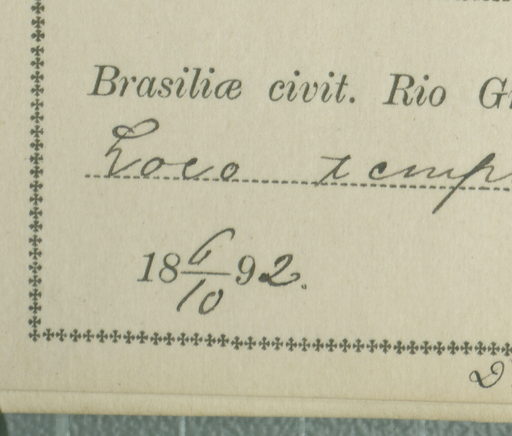 Brasiliæ civit. Rio G
Loco temp
18 6/10 92.